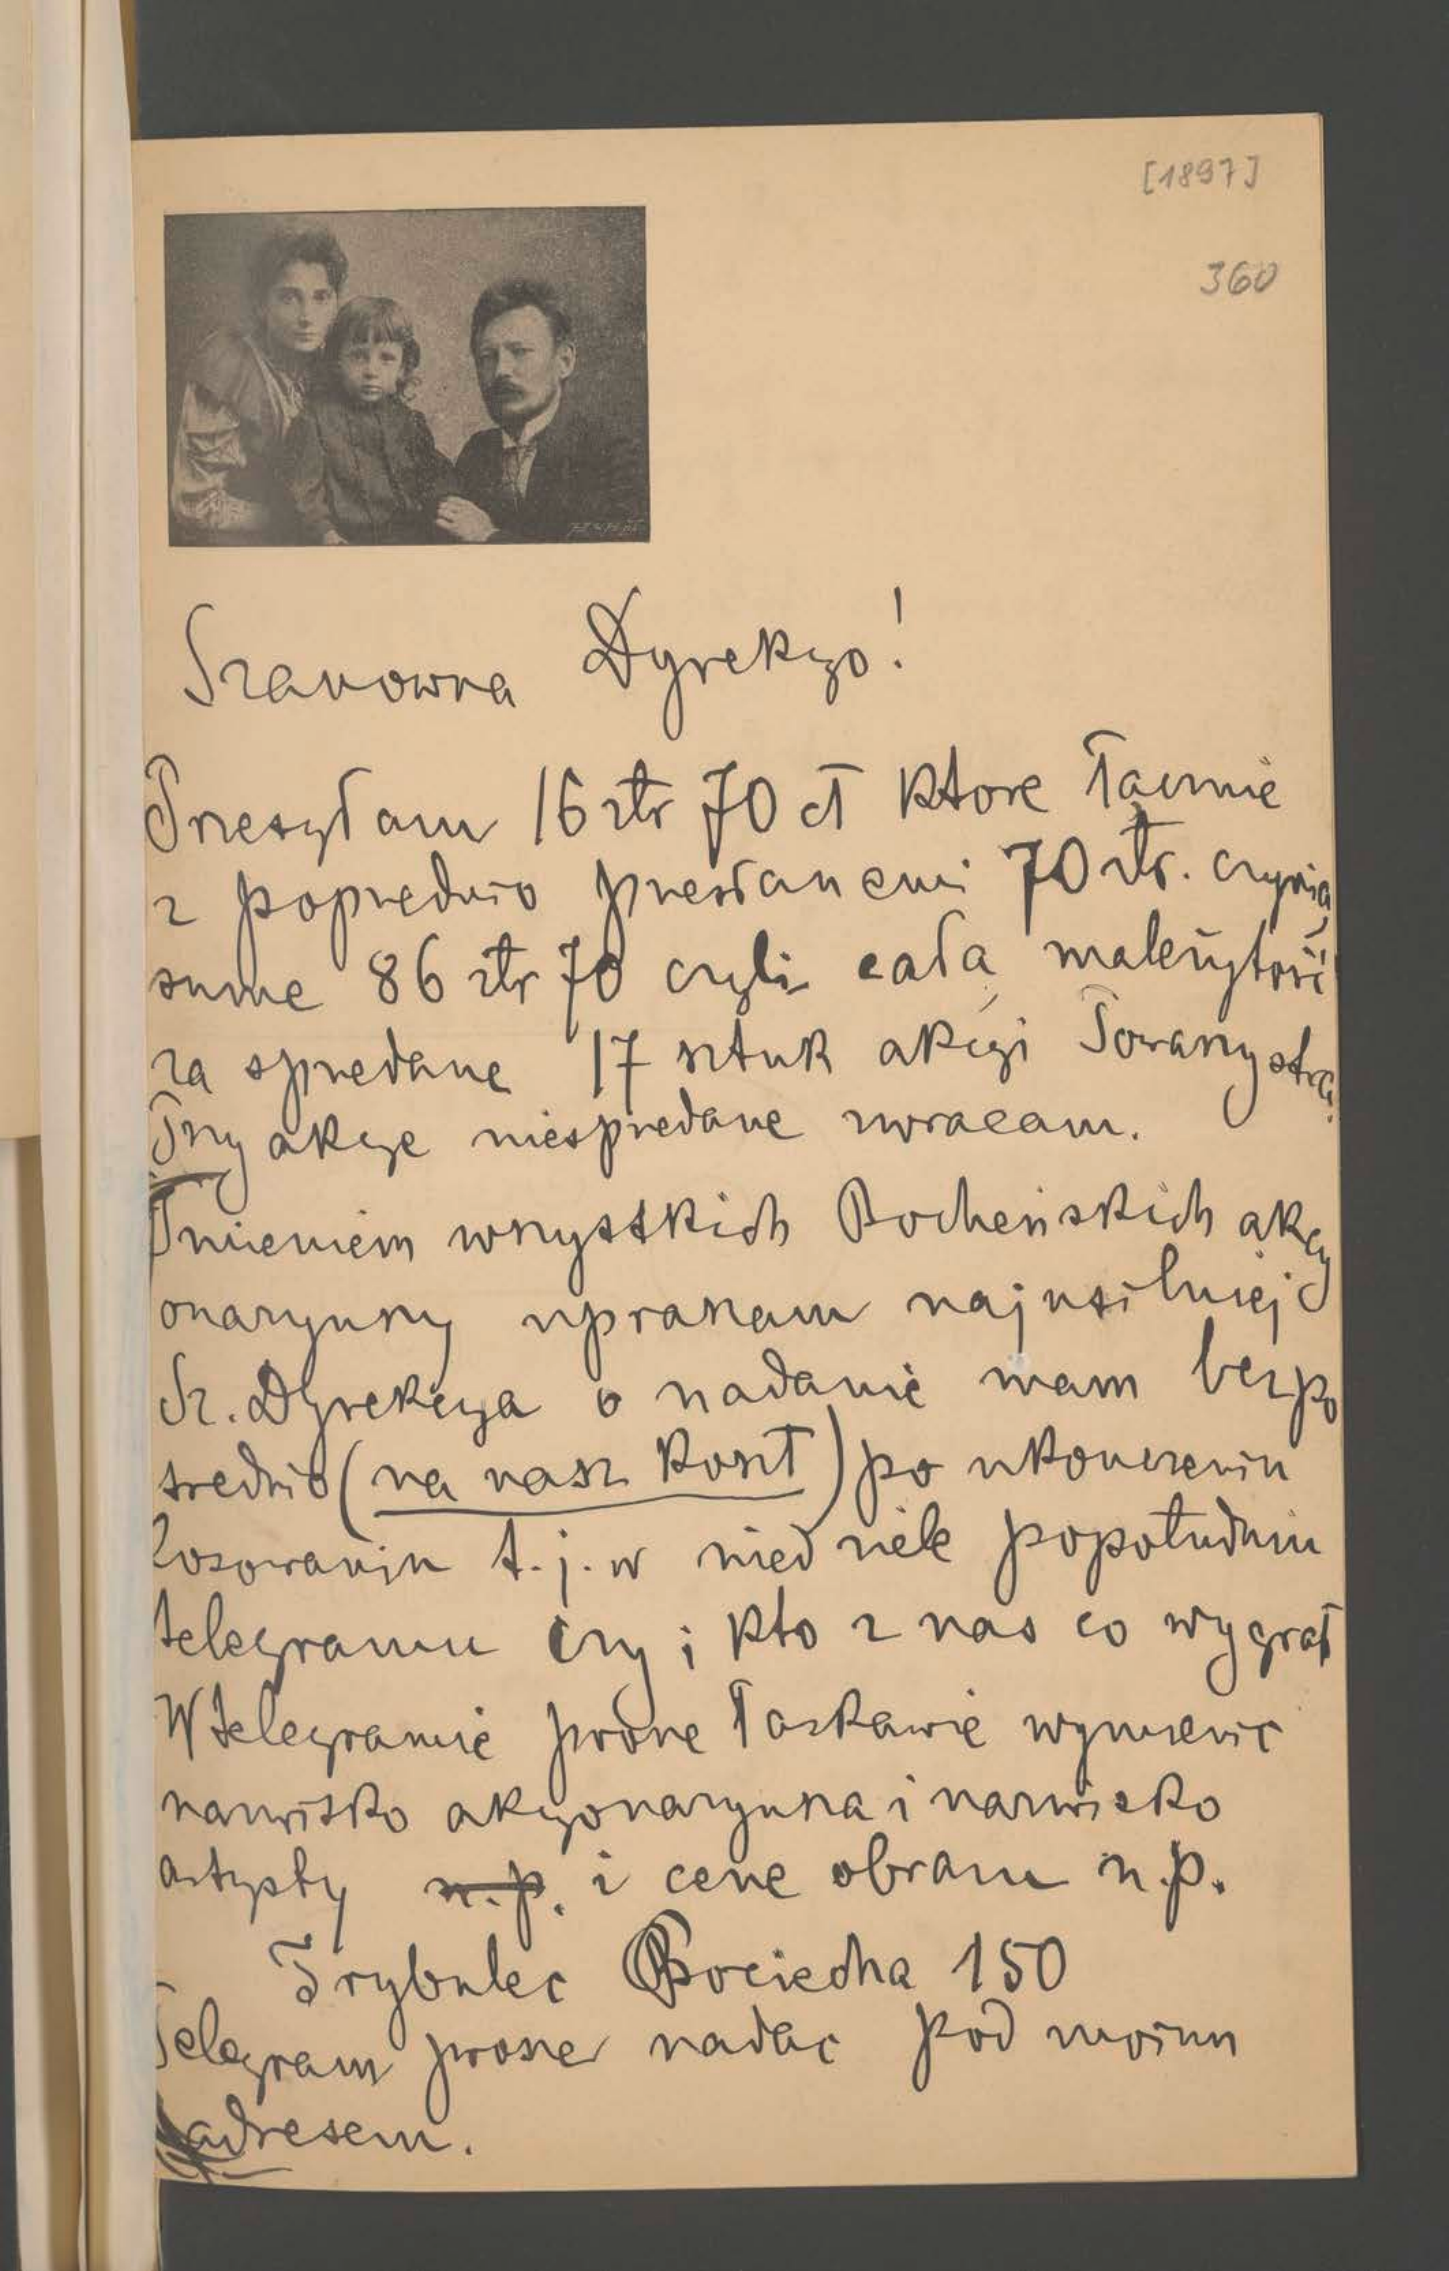 [1897]
360
Szanowna Dyrekcyo!
Przesyłam 16 złr 70 ct ktore łacznie
z poprzednio przesłanemi 70 złr. czynią
sume 86 złr 70 czyli całą należytość
za sprzedane 17 sztuk akcyi Towarzystwa.
Trzy akcye niesprzedane zwracam.
Imieniem wszystkich Bocheńskich akcy
onaryuszy upraszam najusilniej
Sz. Dyrekcya o nadanie nam bezpo
srednio (na nasz koszt) po ukonczeniu
losowaniu t.j. w niedziele popołudniu
telegramu czy i kto z nas co wygrał
W telegramie prosze łaskawie wymienic
nazwisko akcyonaryusza i nazwisko
artysty n.p. i cene obrazu n.p.
Trybulec Bociecha 150
Telegram prosze nadac pod moim
adresem.